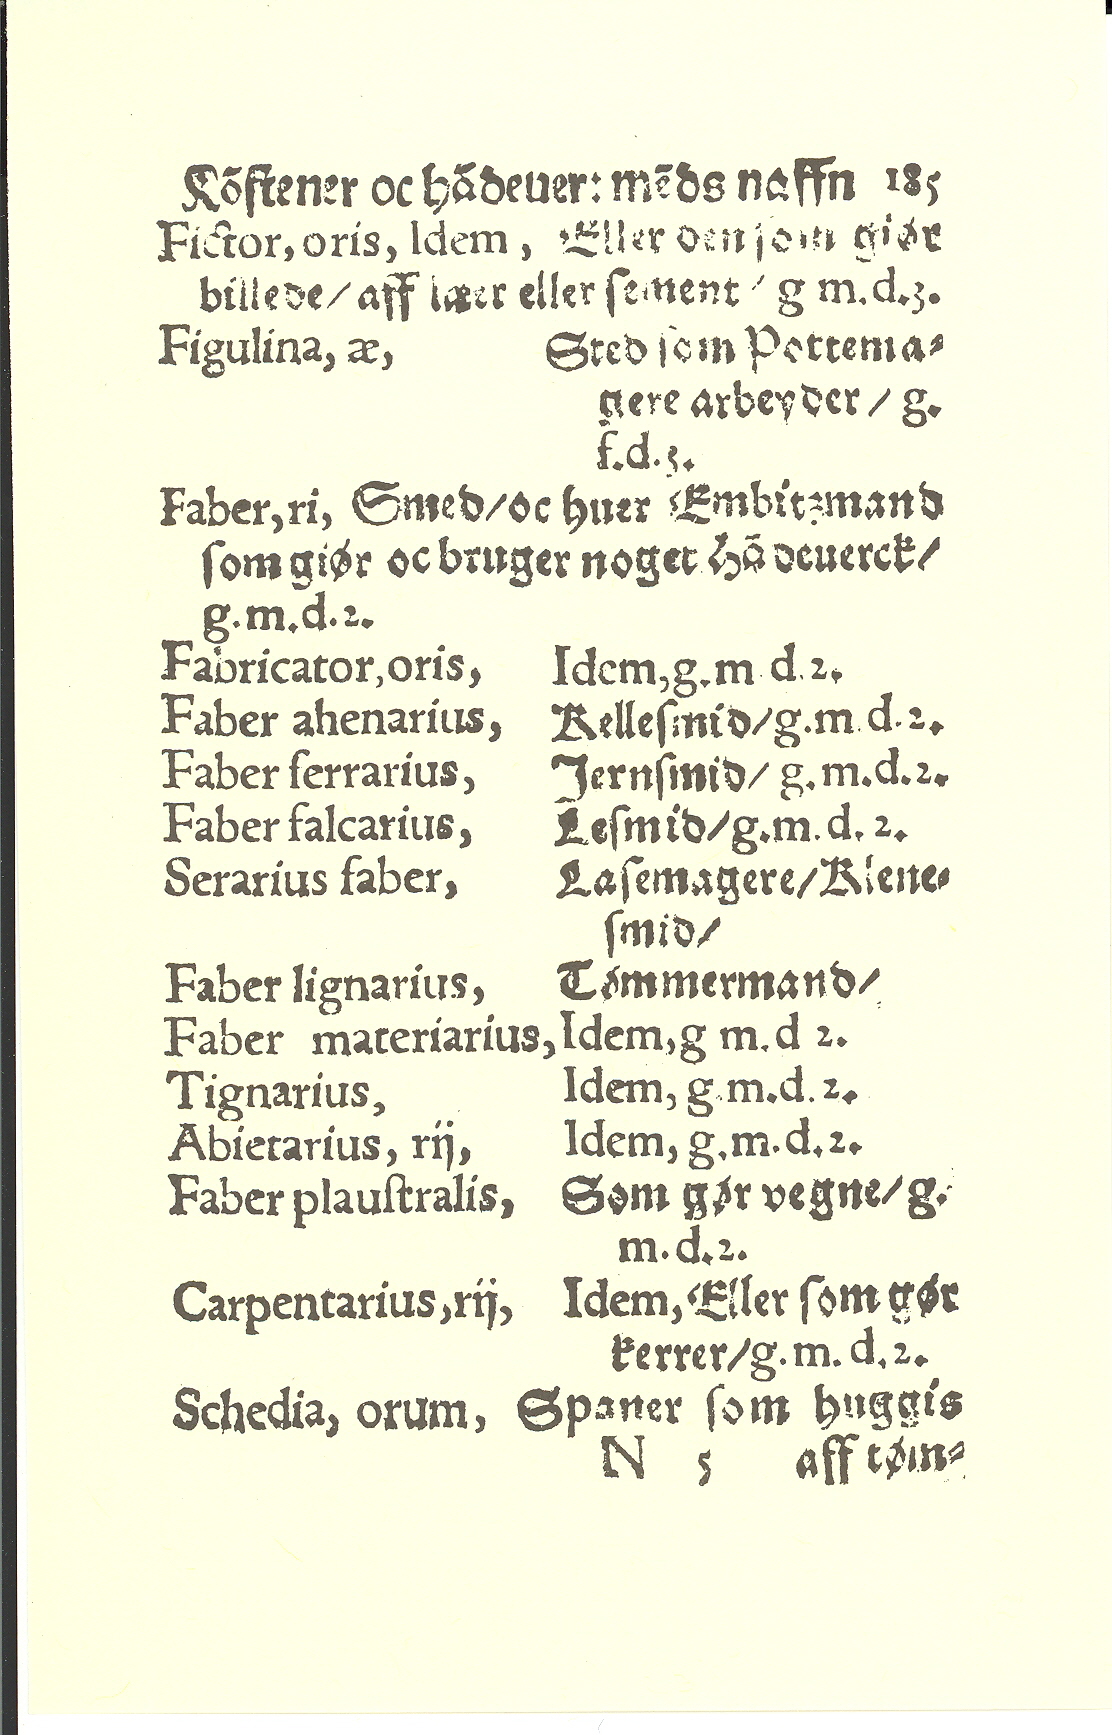 Kõstener oc hãdeuer: mēds naffn 185
Fictor, oris, Idem, Eller den som giør
billede/ aff læer eller sement / g m.d.3.
Figulina, æ, Sted som Pottema⸗
gere arbeyder / g.
f.d.3.
Faber, ri, Smed/oc huer Embitzmand
som giør oc bruger noget hãdeuerck/
g.m.d.2.
Fabricator, oris, Idem, g.m d.2.
Faber ahenarius, Kellesmid/g.m d.2.
Faber ferrarius, Jernsmid/ g.m.d.2.
Faber falcarius, Lesmid/g.m.d.2.
Serarius faber, Lasemagere/Klene⸗
smid/
Faber lignarius, Tømmermand/
Faber materiarius, Idem, g m.d 2.
Tignarius, Idem, g.m.d.2.
Abietarius, rij, Idem, g.m.d.2.
Faber plaustralis, Som gør vegne/ g.
m.d.2.
Carpentarius, rij, Idem, Eller som gør
kerrer/g.m.d.2.
Schedia, orum, Spaner som huggis
N 5 aff tøm⸗